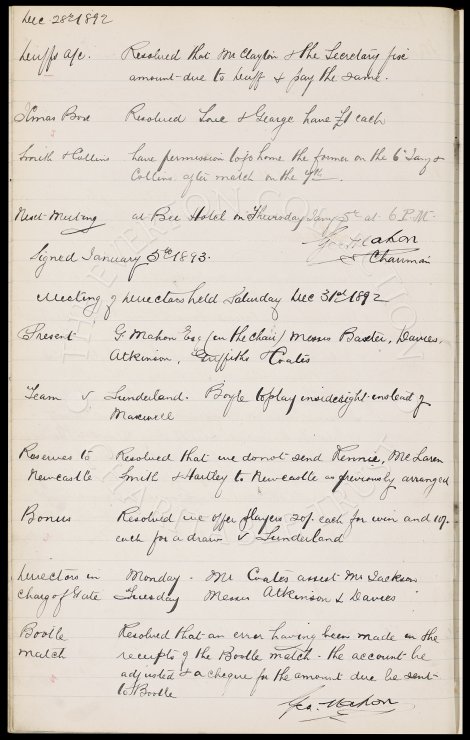 Dec 28th 1892
Duffs a/c. Resolved that Mr Clayton & the Secretary fix
amount due to Duff & pay the same.
Xmas Box Resolved Love & George have £1 each
Smith & Collins have permission to go home the former on the 6th Jany &
Collins after match on the 7th.
Next Meeting at Bee Hotel on Thursday Jany 5th at 6 P.M.
Geo Mahon
Signed January 5th 1893. Chairman
Meeting of Directors held Saturday Dec 31st 1892
Present G. Mahon Esq (in the chair) Messrs Baxter, Davies,
Atkinson, Griffiths & Coates
Team v Sunderland. Boyle to play inside right instead of
Maxwell
Reserves to Resolved that we do not send Rennie, McLaren
Newcastle Smith & Hartley to Newcastle as previously arranged
Bonus Resolved we offer players 20/- each for win and 10/-
each for a draw v Sunderland
Directors in Monday. Mr Coates assist Mr Jackson
charge of Gate Tuesday Messrs Atkinson & Davies
Bootle Resolved that an error having been made in the
match receipts of the Bootle match - the account be
adjusted & a cheque for the amount due be sent
to Bootle
Geo. Mahon